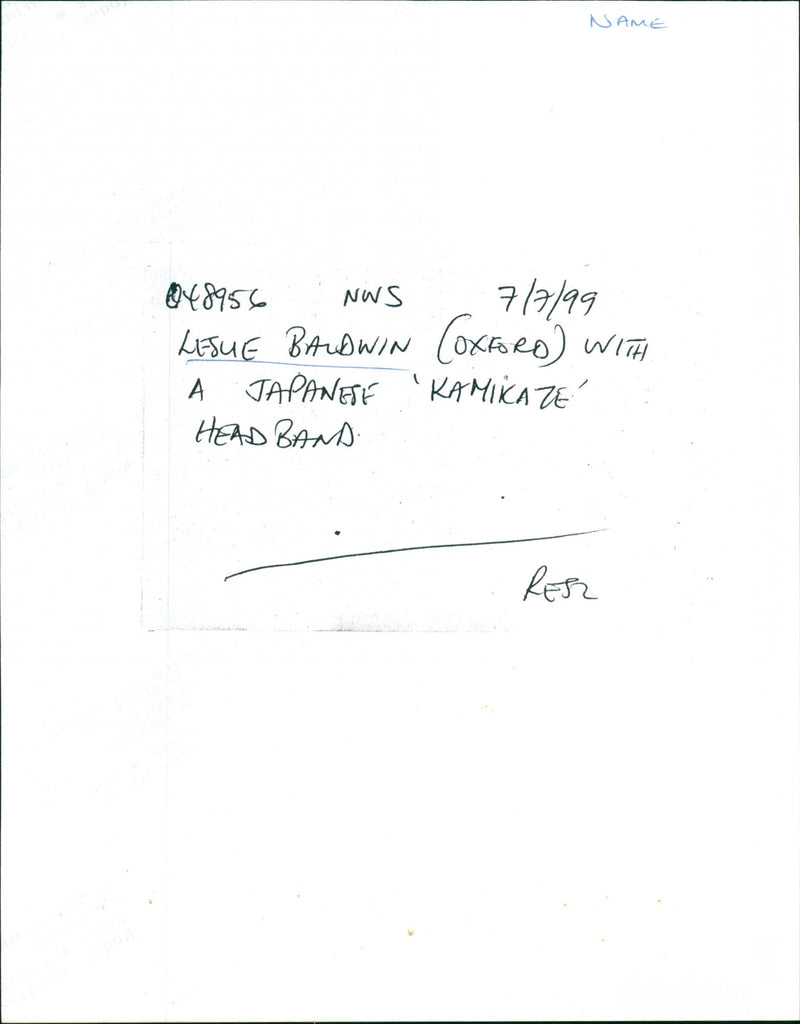 NAME
048956 NWS 7/7/99
LESLIE BALDWIN (OXFORD) WITH
A JAPANESE 'KAMIKAZE'
HEADBAND